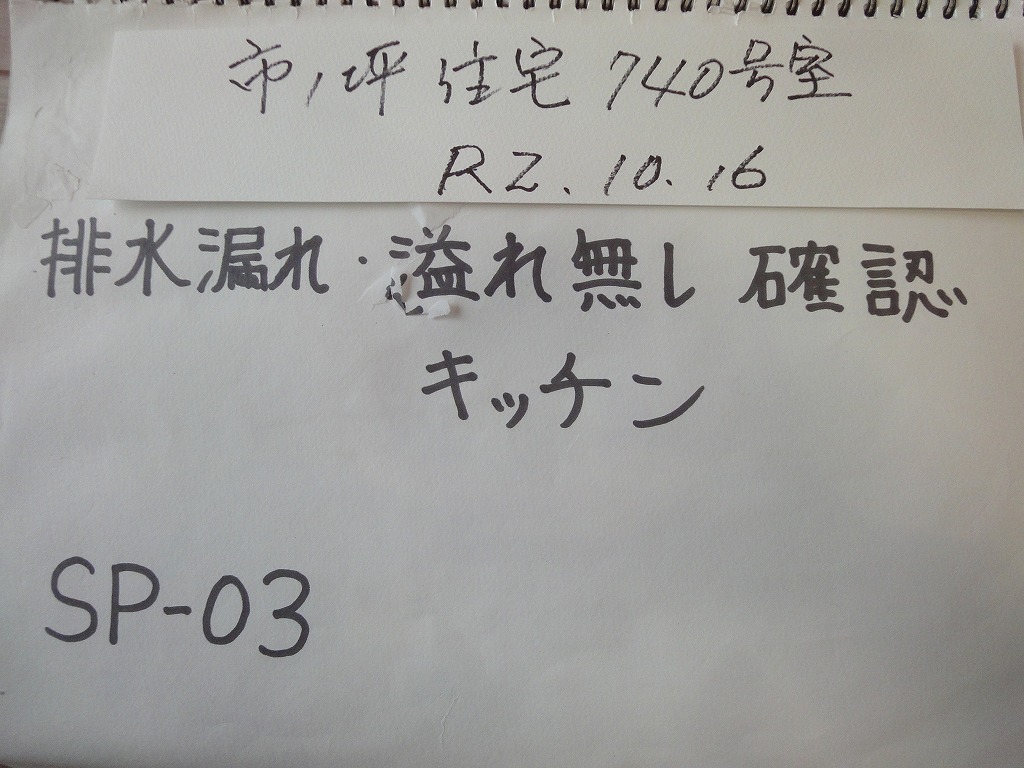 市ノ坪住宅 740号室
R2.10.16
排水漏れ・溢れ無し 確認
キッチン
SP-03